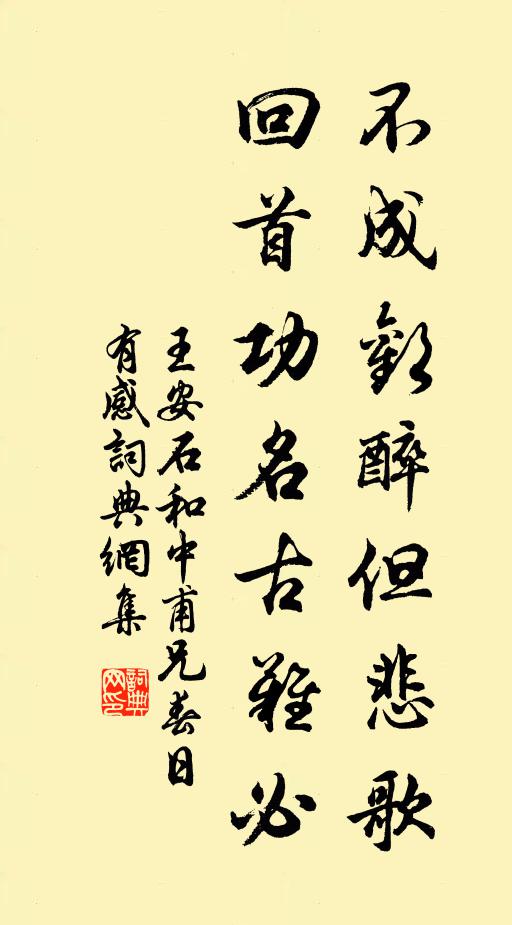 不成歡醉但悲歌
回首功名古難必
王安石和中甫兄春日
有感詞典網集
詞典
网印